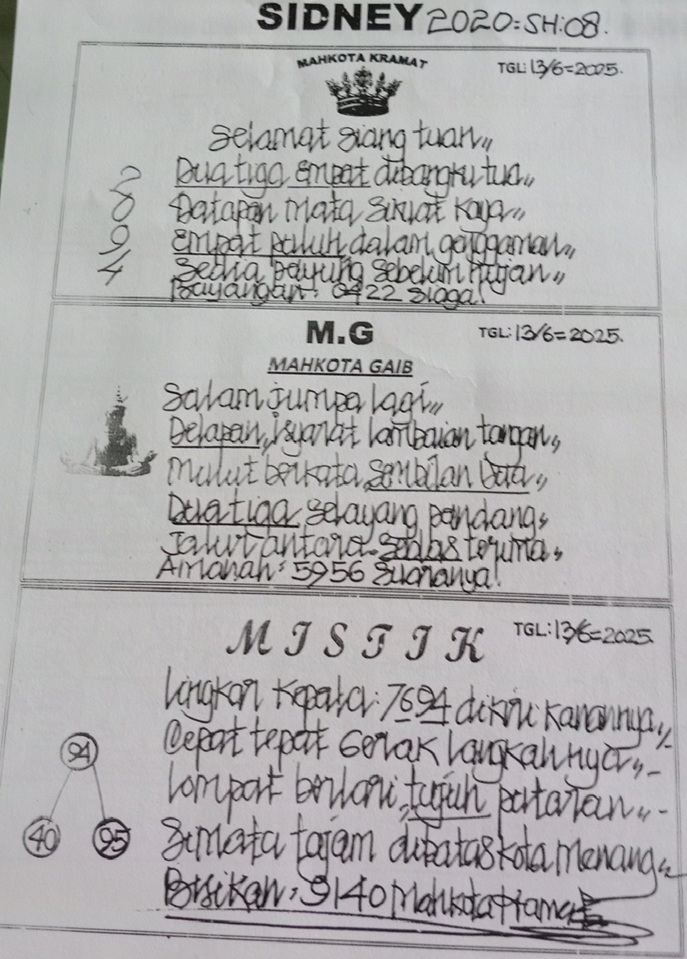 SIDNEY 2020:SH:08.
MAHKOTA KRAMAT
TGL: 13/6=2025.
Selamat siang tuan,,
Dua tiga empat dibangku tua,,
Datapan mata sikuat kaya,,
Empat puluh dalam genggaman,,
Sedia payung sebelum hujan,,
Bayangan: 0422 siaga!
2
8
9
4
M.G
TGL: 13/6=2025.
MAHKOTA GAIB
Salam jumpa lagi,,
Delapan, isyarat lambaian tangan,
Mulut berkata sembilan
Dua tiga selayang pandang,
Jalur antara terima,
Amanah: 5956 suaranya!
MISTIK
TGL: 13/6=2025.
Lingkar kepala: 7694 dikiri kanannya,,
Cepat tepat gerak langkahnya,,-
Lompat berlari, tujuh putaran,,-
Simata tajam dibatas kota menang,
Bisikan: 9140 Mahkota
94
40
95